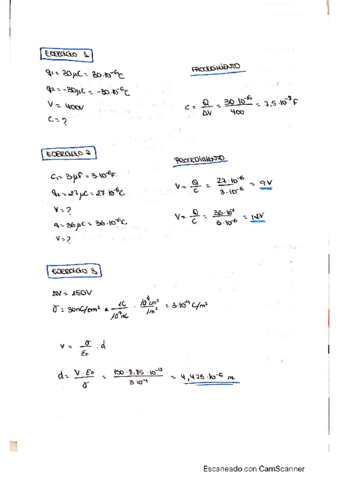 EJERCICIO 1
q1 = 30 μC = 30·10⁻⁶C
q2 = -30μC = -30·10⁻⁶C
V = 400V
C = ?
PROCEDIMIENTO
C = Q/ΔV = 30·10⁻⁶/400 = 7,5·10⁻⁸ F
EJERCICIO 2
C1 = 3μF = 3·10⁻⁶F
q2 = 27μC = 27·10⁻⁶C
V = ?
q = 36μC = 36·10⁻⁶C
V = ?
PROCEDIMIENTO
V = Q/C = 27·10⁻⁶/3·10⁻⁶ = 9V
V = Q/C = 36·10⁻⁶/3·10⁻⁶ = 12V
EJERCICIO 3
ΔV = 150V
σ = 30nC/cm² · 1C/10⁹nC · 10⁴cm²/1m² = 3·10⁻⁴C/m²
V = σ/ε₀ · d
d = V·ε₀/σ = 150·8.85·10⁻¹²/3·10⁻⁴ = 4,425·10⁻⁶ m
Escaneado con CamScanner